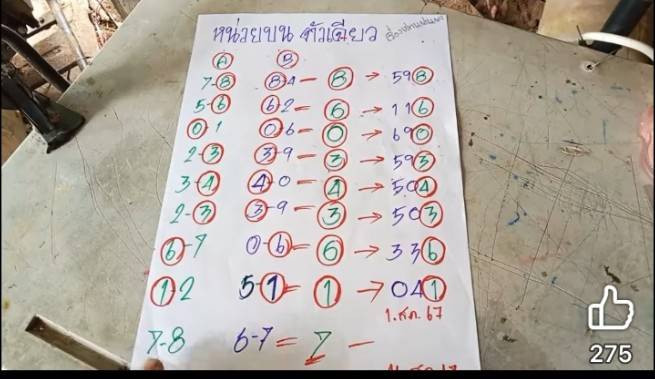 หน่วยบน ตัวเดียว
A B
7-8 84 = 8 → 598
5-6 62 = 6 → 116
01 0-6 = 0 → 690
2-3 3-9 = 3 → 593
3-4 4-0 = 4 → 504
2-3 3-9 = 3 → 503
6-7 0-6 = 6 → 336
1-2 5-1 = 1 → 041
1.ส.ค. 67
7-8 6-7 = 7 –
275